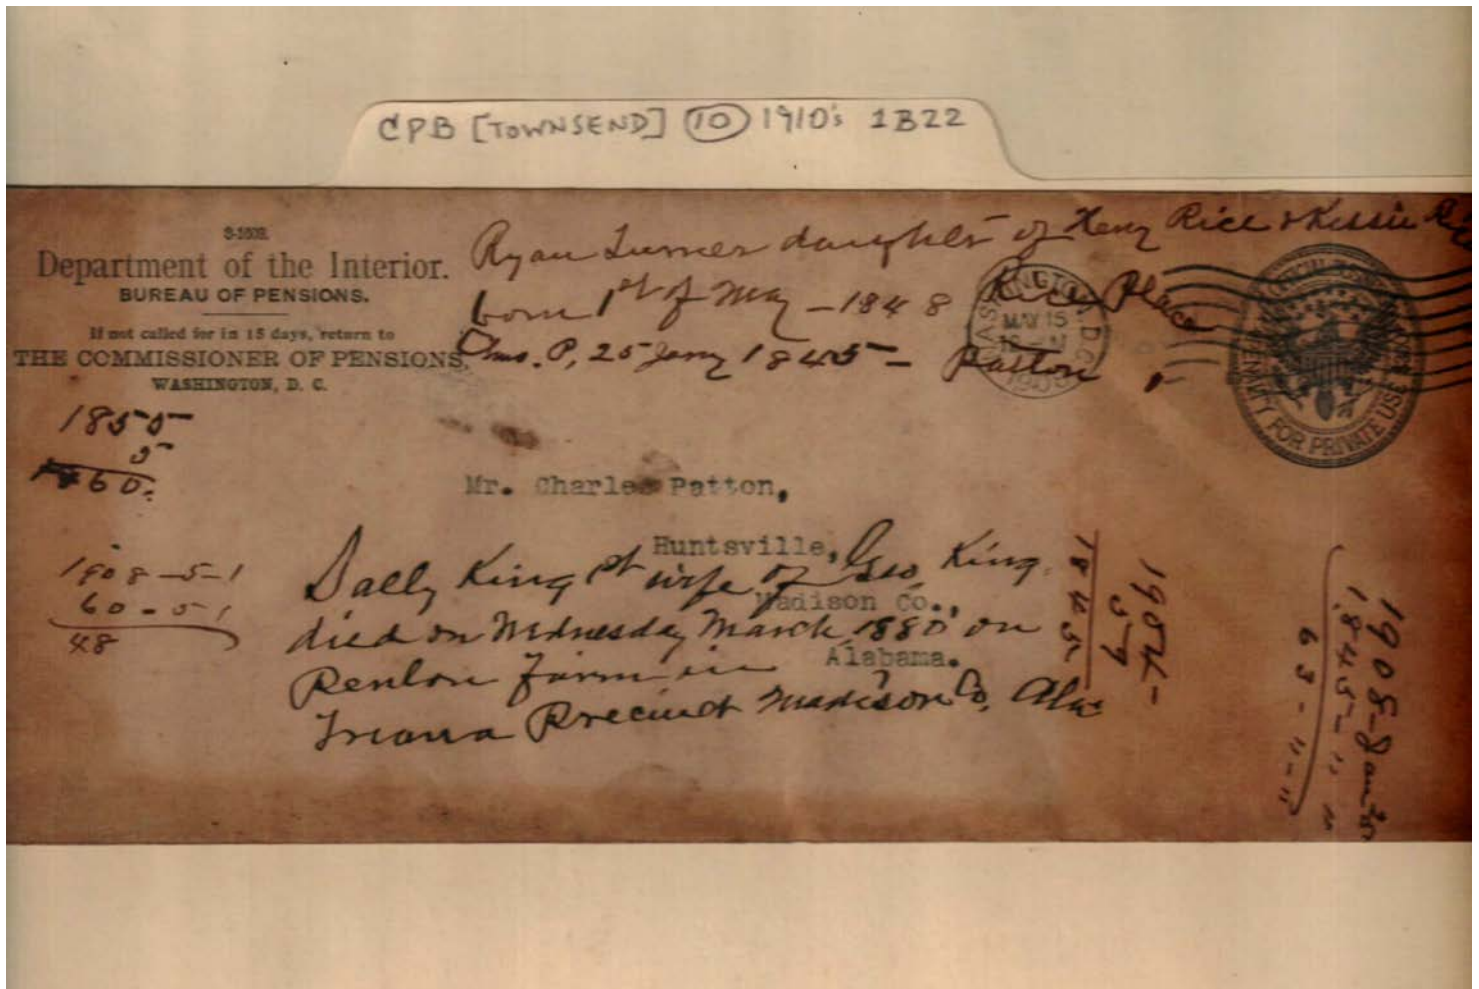 CPB [TOWNSEND] 10 1910's 1B22
3-1603.
Department of the Interior.
BUREAU OF PENSIONS.
If not called for in 15 days, return to
THE COMMISSIONER OF PENSIONS,
WASHINGTON, D. C.
Ryan Turner daughter of Henry Rice & Kessie Rice
born 1st of May - 1848 Rice Place
Chas. P, 25 Jany 1845 - Patton
WASHINGTON, D.C.
MAY 15
PENALTY FOR PRIVATE USE
1855
5
60.
Mr. Charles Patton,
Huntsville,
Madison Co.,
Alabama.
1908-5-1
60-5-1
48
Sally King 1st wife of Geo. King.
died on Wednesday March 1880 on
Farm in
Triana Precinct Madison Co, Ala
1904-
59
1845
1908-Jan
1845-11
63-11-11